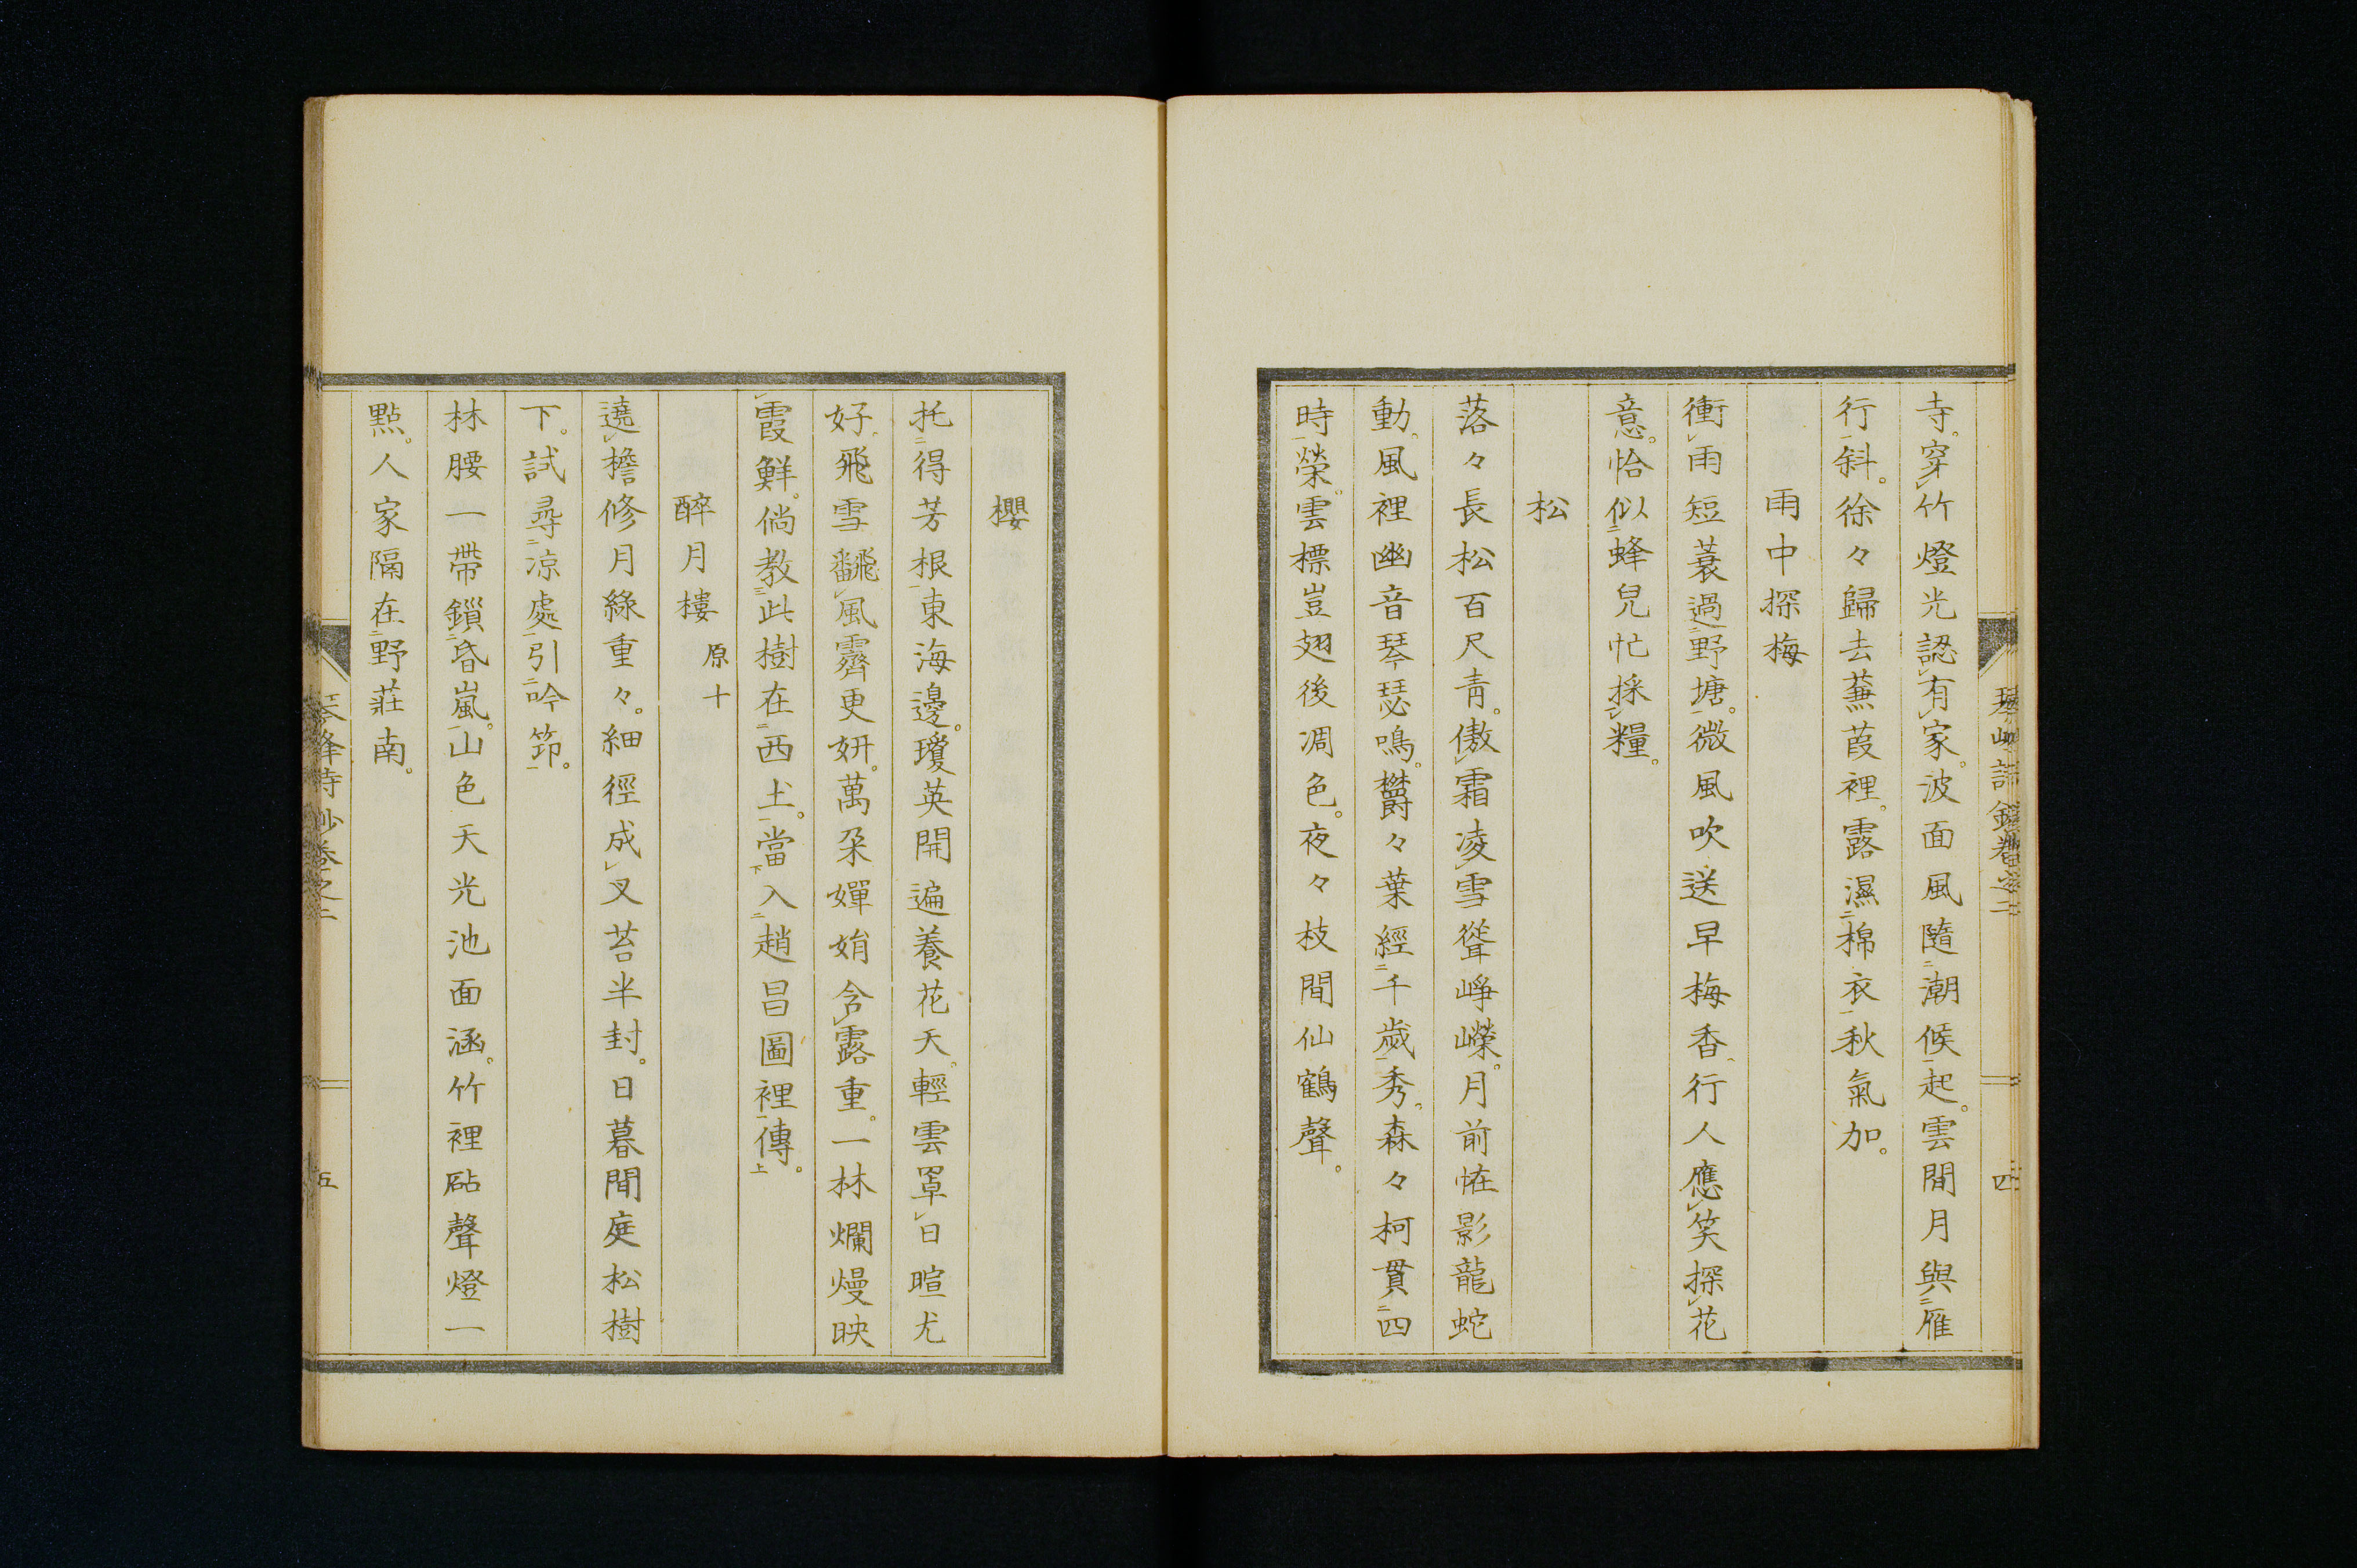 寺。穿竹燈光認有家。波面風隨潮候起。雲間月與雁
行斜。徐々歸去蒹葭裡。露濕棉衣秋氣加。
雨中探梅
衝雨短蓑過野塘。微風吹送早梅香。行人應笑探花
意。恰似蜂兒忙採糧。
松
落々長松百尺青。傲霜凌雪聳崢嶸。月前怪影龍蛇
動。風裡幽音琴瑟鳴。欝々葉經千歲秀。森々柯貫四
時榮。雲標豈翅後凋色。夜々枝間仙鶴聲。
櫻
托得芳根東海邊。瓊英開遍養花天。輕雲罩日暄尤
好。飛雪翻風霽更妍。萬朶嬋娟含露重。一林爛熳映
霞鮮。倘教此樹在西土。當入趙昌圖裡傳。
醉月樓 原十
遶檐修月綠重々。細徑成叉苔半封。日暮閒庭松樹
下。試尋凉處引吟筇。
林腰一帶鎖昏嵐。山色天光池面涵。竹裡砧聲燈一
點。人家隔在野莊南。
琴峰詩鈔卷之二
五
四